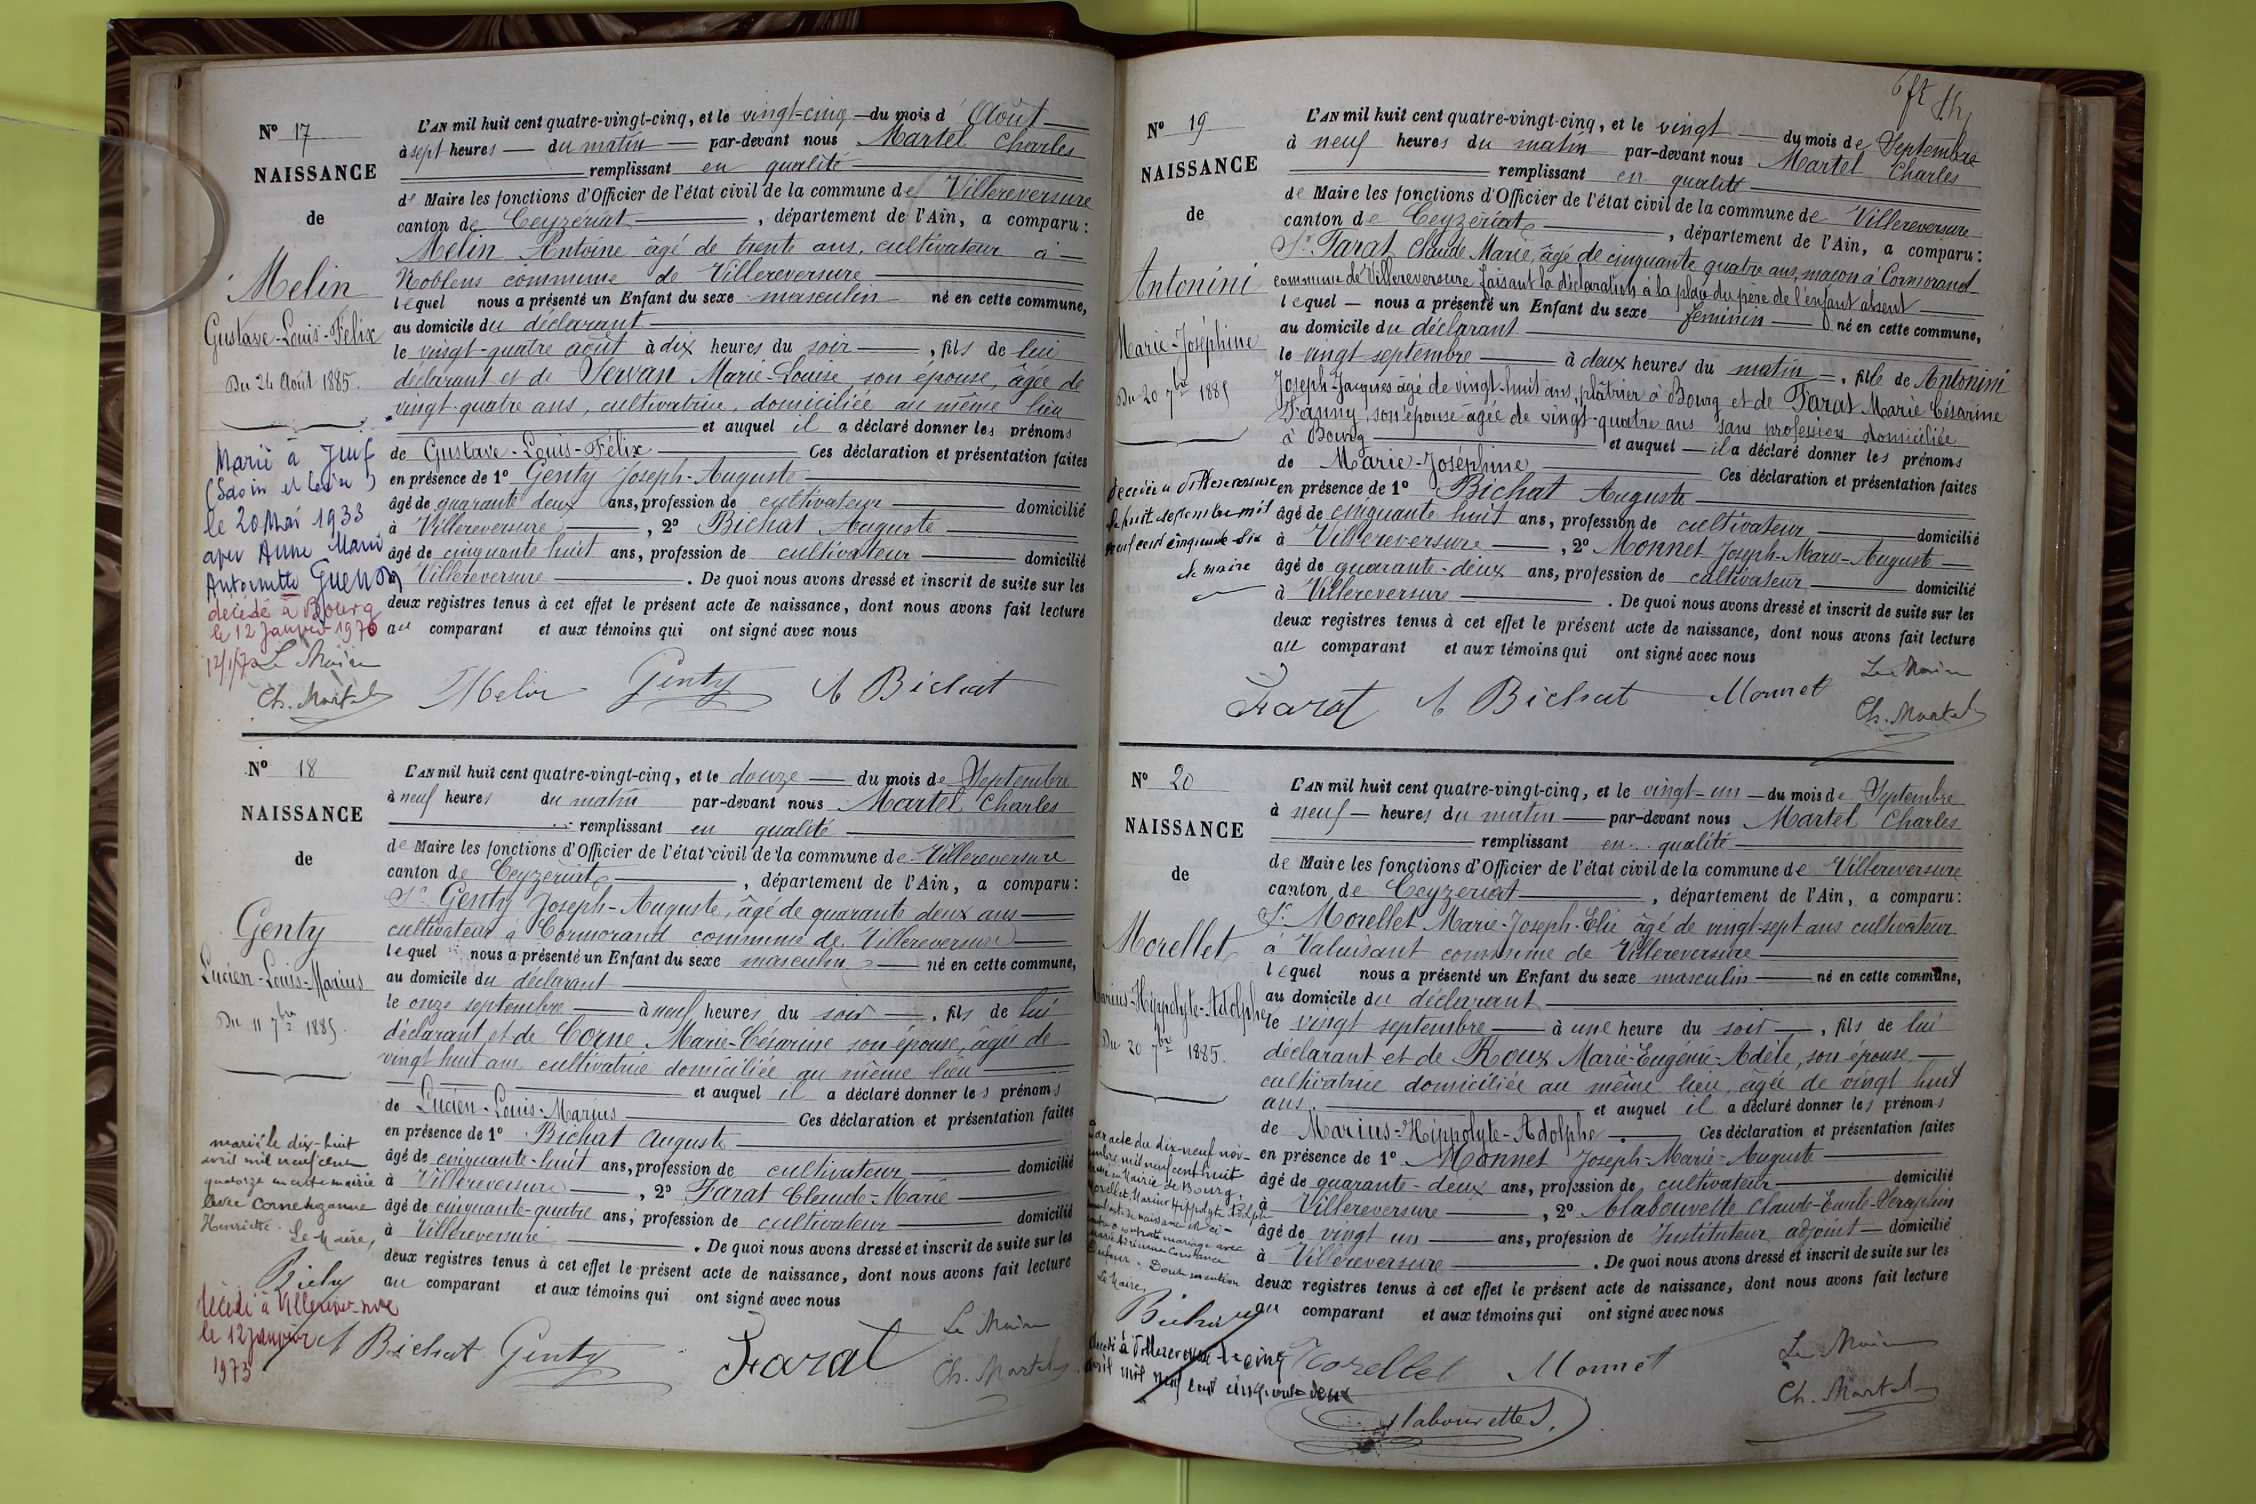 N° 17
NAISSANCE
de
Melin
Gustave-Louis-Félix
Du 24 Août 1885.
Marié à Juif
(Saôin et Loire)
le 20 Mai 1933
avec Anne Marie
Antoinette Guenon
décédé à Bourg
le 12 Janvier 1970
L'AN mil huit cent quatre-vingt-cinq, et le vingt-cinq du mois d'Août
à sept heures du matin par-devant nous Martel Charles
remplissant en qualité
de Maire les fonctions d'Officier de l'état civil de la commune de Villereversure
canton de Ceyzériat, département de l'Ain, a comparu :
Melin Antoine âgé de trente ans, cultivateur à
Noblens commune de Villereversure
lequel nous a présenté un Enfant du sexe masculin né en cette commune,
au domicile du déclarant
le vingt-quatre août à dix heures du soir, fils de lui
déclarant et de Servan Marie-Louise son épouse, âgée de
vingt-quatre ans, cultivatrice, domiciliée au même lieu
et auquel il a déclaré donner les prénoms
de Gustave-Louis-Félix Ces déclaration et présentation faites
en présence de 1° Genty Joseph-Auguste
âgé de quarante deux ans, profession de cultivateur domicilié
à Villereversure, 2° Bichat Auguste
âgé de cinquante huit ans, profession de cultivateur domicilié
à Villereversure. De quoi nous avons dressé et inscrit de suite sur les
deux registres tenus à cet effet le présent acte de naissance, dont nous avons fait lecture
au comparant et aux témoins qui ont signé avec nous
Le Maire
Ch. Martel Melin Genty A Bichat
N° 18
NAISSANCE
de
Genty
Lucien-Louis-Marius
Du 11 7bre 1885.
marié le dix-huit
avril mil neuf cent
quatorze en cette mairie
avec Corne Suzanne
Henriette. Le Maire,
Décédé à Villereversure
le 12 janvier
1973
L'AN mil huit cent quatre-vingt-cinq, et le douze du mois de Septembre
à neuf heures du matin par-devant nous Martel Charles
remplissant en qualité
de Maire les fonctions d'Officier de l'état civil de la commune de Villereversure
canton de Ceyzériat, département de l'Ain, a comparu :
Sr Genty Joseph-Auguste, âgé de quarante deux ans
cultivateur à Cormorand commune de Villereversure
lequel nous a présenté un Enfant du sexe masculin né en cette commune,
au domicile du déclarant
le onze septembre à neuf heures du soir, fils de lui
déclarant et de Corne Marie-Césarine son épouse, âgée de
vingt huit ans, cultivatrice domiciliée au même lieu
et auquel il a déclaré donner les prénoms
de Lucien-Louis-Marius Ces déclaration et présentation faites
en présence de 1° Bichat Auguste
âgé de cinquante-huit ans, profession de cultivateur domicilié
à Villereversure, 2° Farat Claude-Marie
âgé de cinquante-quatre ans, profession de cultivateur domicilié
à Villereversure. De quoi nous avons dressé et inscrit de suite sur les
deux registres tenus à cet effet le présent acte de naissance, dont nous avons fait lecture
au comparant et aux témoins qui ont signé avec nous
A Bichat Genty Farat Le Maire
Ch. Martel
N° 19
NAISSANCE
de
Antonini
Marie-Joséphine
Du 20 7bre 1885
décédée à Villereversure
le huit septembre mil
neuf cent cinquante six
le maire
L'AN mil huit cent quatre-vingt-cinq, et le vingt du mois de Septembre
à neuf heures du matin par-devant nous Martel Charles
remplissant en qualité
de Maire les fonctions d'Officier de l'état civil de la commune de Villereversure
canton de Ceyzériat, département de l'Ain, a comparu :
Sr Farat Claude Marie, âgé de cinquante quatre ans, maçon à Cormorand
commune de Villereversure faisant la déclaration à la place du père de l'enfant absent
lequel nous a présenté un Enfant du sexe féminin né en cette commune,
au domicile du déclarant
le vingt septembre à deux heures du matin, fille de Antonini
Joseph-Jacques âgé de vingt-huit ans, plâtrier à Bourg et de Farat Marie Césarine
Fanny, son épouse âgée de vingt-quatre ans sans profession domiciliée
à Bourg et auquel il a déclaré donner les prénoms
de Marie-Joséphine Ces déclaration et présentation faites
en présence de 1° Bichat Auguste
âgé de cinquante huit ans, profession de cultivateur domicilié
à Villereversure, 2° Monnet Joseph-Marie-Auguste
âgé de quarante-deux ans, profession de cultivateur domicilié
à Villereversure. De quoi nous avons dressé et inscrit de suite sur les
deux registres tenus à cet effet le présent acte de naissance, dont nous avons fait lecture
au comparant et aux témoins qui ont signé avec nous
Farat A Bichat Monnet Le Maire
Ch. Martel
N° 20
NAISSANCE
de
Morellet
Marius-Hippolyte-Adolphe
Du 20 7bre 1885.
Par acte du dix-neuf nov-
embre mil neuf cent huit
Mairie de Bourg,
Morellet Marius Hippolyte Adolphe
a contracté mariage avec
Dont mention
Le Maire,
décédé à Villereversure le cinq
avril mil neuf cent cinquante deux
L'AN mil huit cent quatre-vingt-cinq, et le vingt-un du mois de Septembre
à neuf heures du matin par-devant nous Martel Charles
remplissant en qualité
de Maire les fonctions d'Officier de l'état civil de la commune de Villereversure
canton de Ceyzériat, département de l'Ain, a comparu :
Sr Morellet Marie-Joseph-Elie âgé de vingt-sept ans cultivateur
à Valuisant commune de Villereversure
lequel nous a présenté un Enfant du sexe masculin né en cette commune,
au domicile du déclarant
le vingt septembre à une heure du soir, fils de lui
déclarant et de Roux Marie-Eugénie-Adèle, son épouse
cultivatrice domiciliée au même lieu, âgée de vingt huit
ans. et auquel il a déclaré donner les prénoms
de Marius-Hippolyte-Adolphe. Ces déclaration et présentation faites
en présence de 1° Monnet Joseph-Marie-Auguste
âgé de quarante-deux ans, profession de cultivateur domicilié
à Villereversure, 2° Alabouvette Claude-Emile-Séraphin
âgé de vingt un ans, profession de Instituteur adjoint domicilié
à Villereversure. De quoi nous avons dressé et inscrit de suite sur les
deux registres tenus à cet effet le présent acte de naissance, dont nous avons fait lecture
au comparant et aux témoins qui ont signé avec nous
Morellet Monnet Le Maire
Ch. Martel
Alabouvette